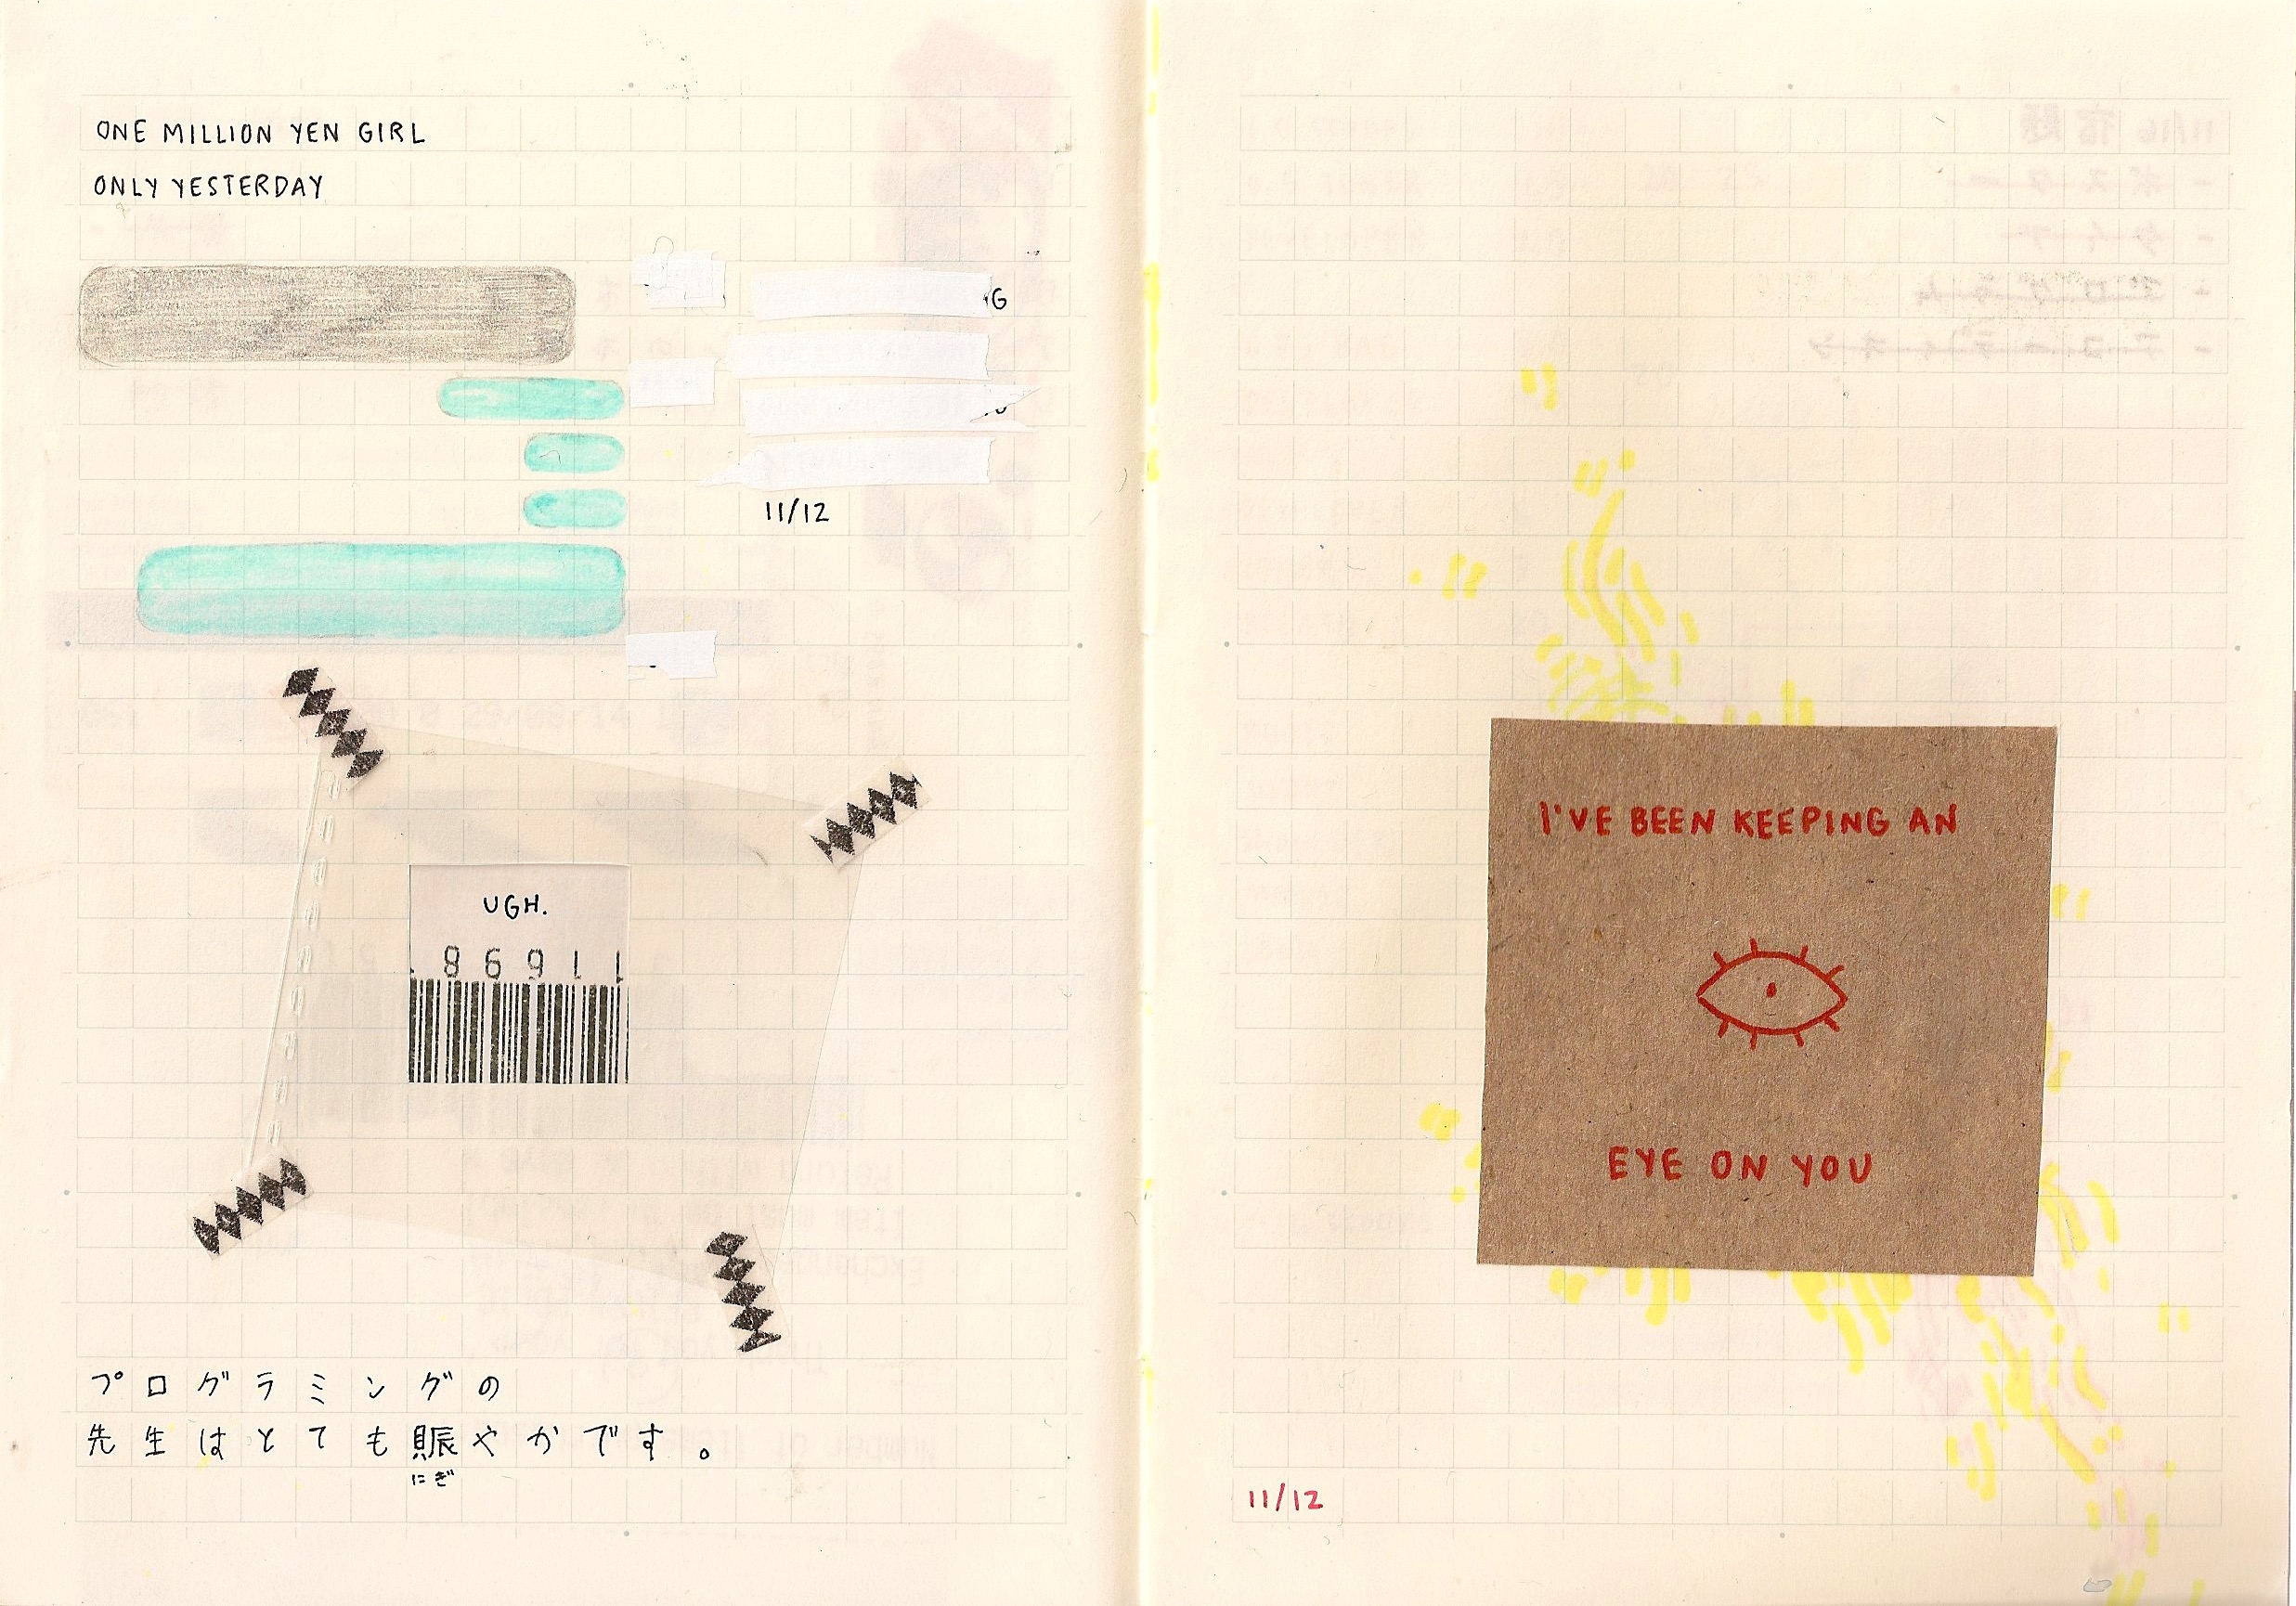 ONE MILLION YEN GIRL
ONLY YESTERDAY
G
11/12
UGH.
11698
プログラミングの
先生はとても賑やかです。
にぎ
I'VE BEEN KEEPING AN
EYE ON YOU
11/12